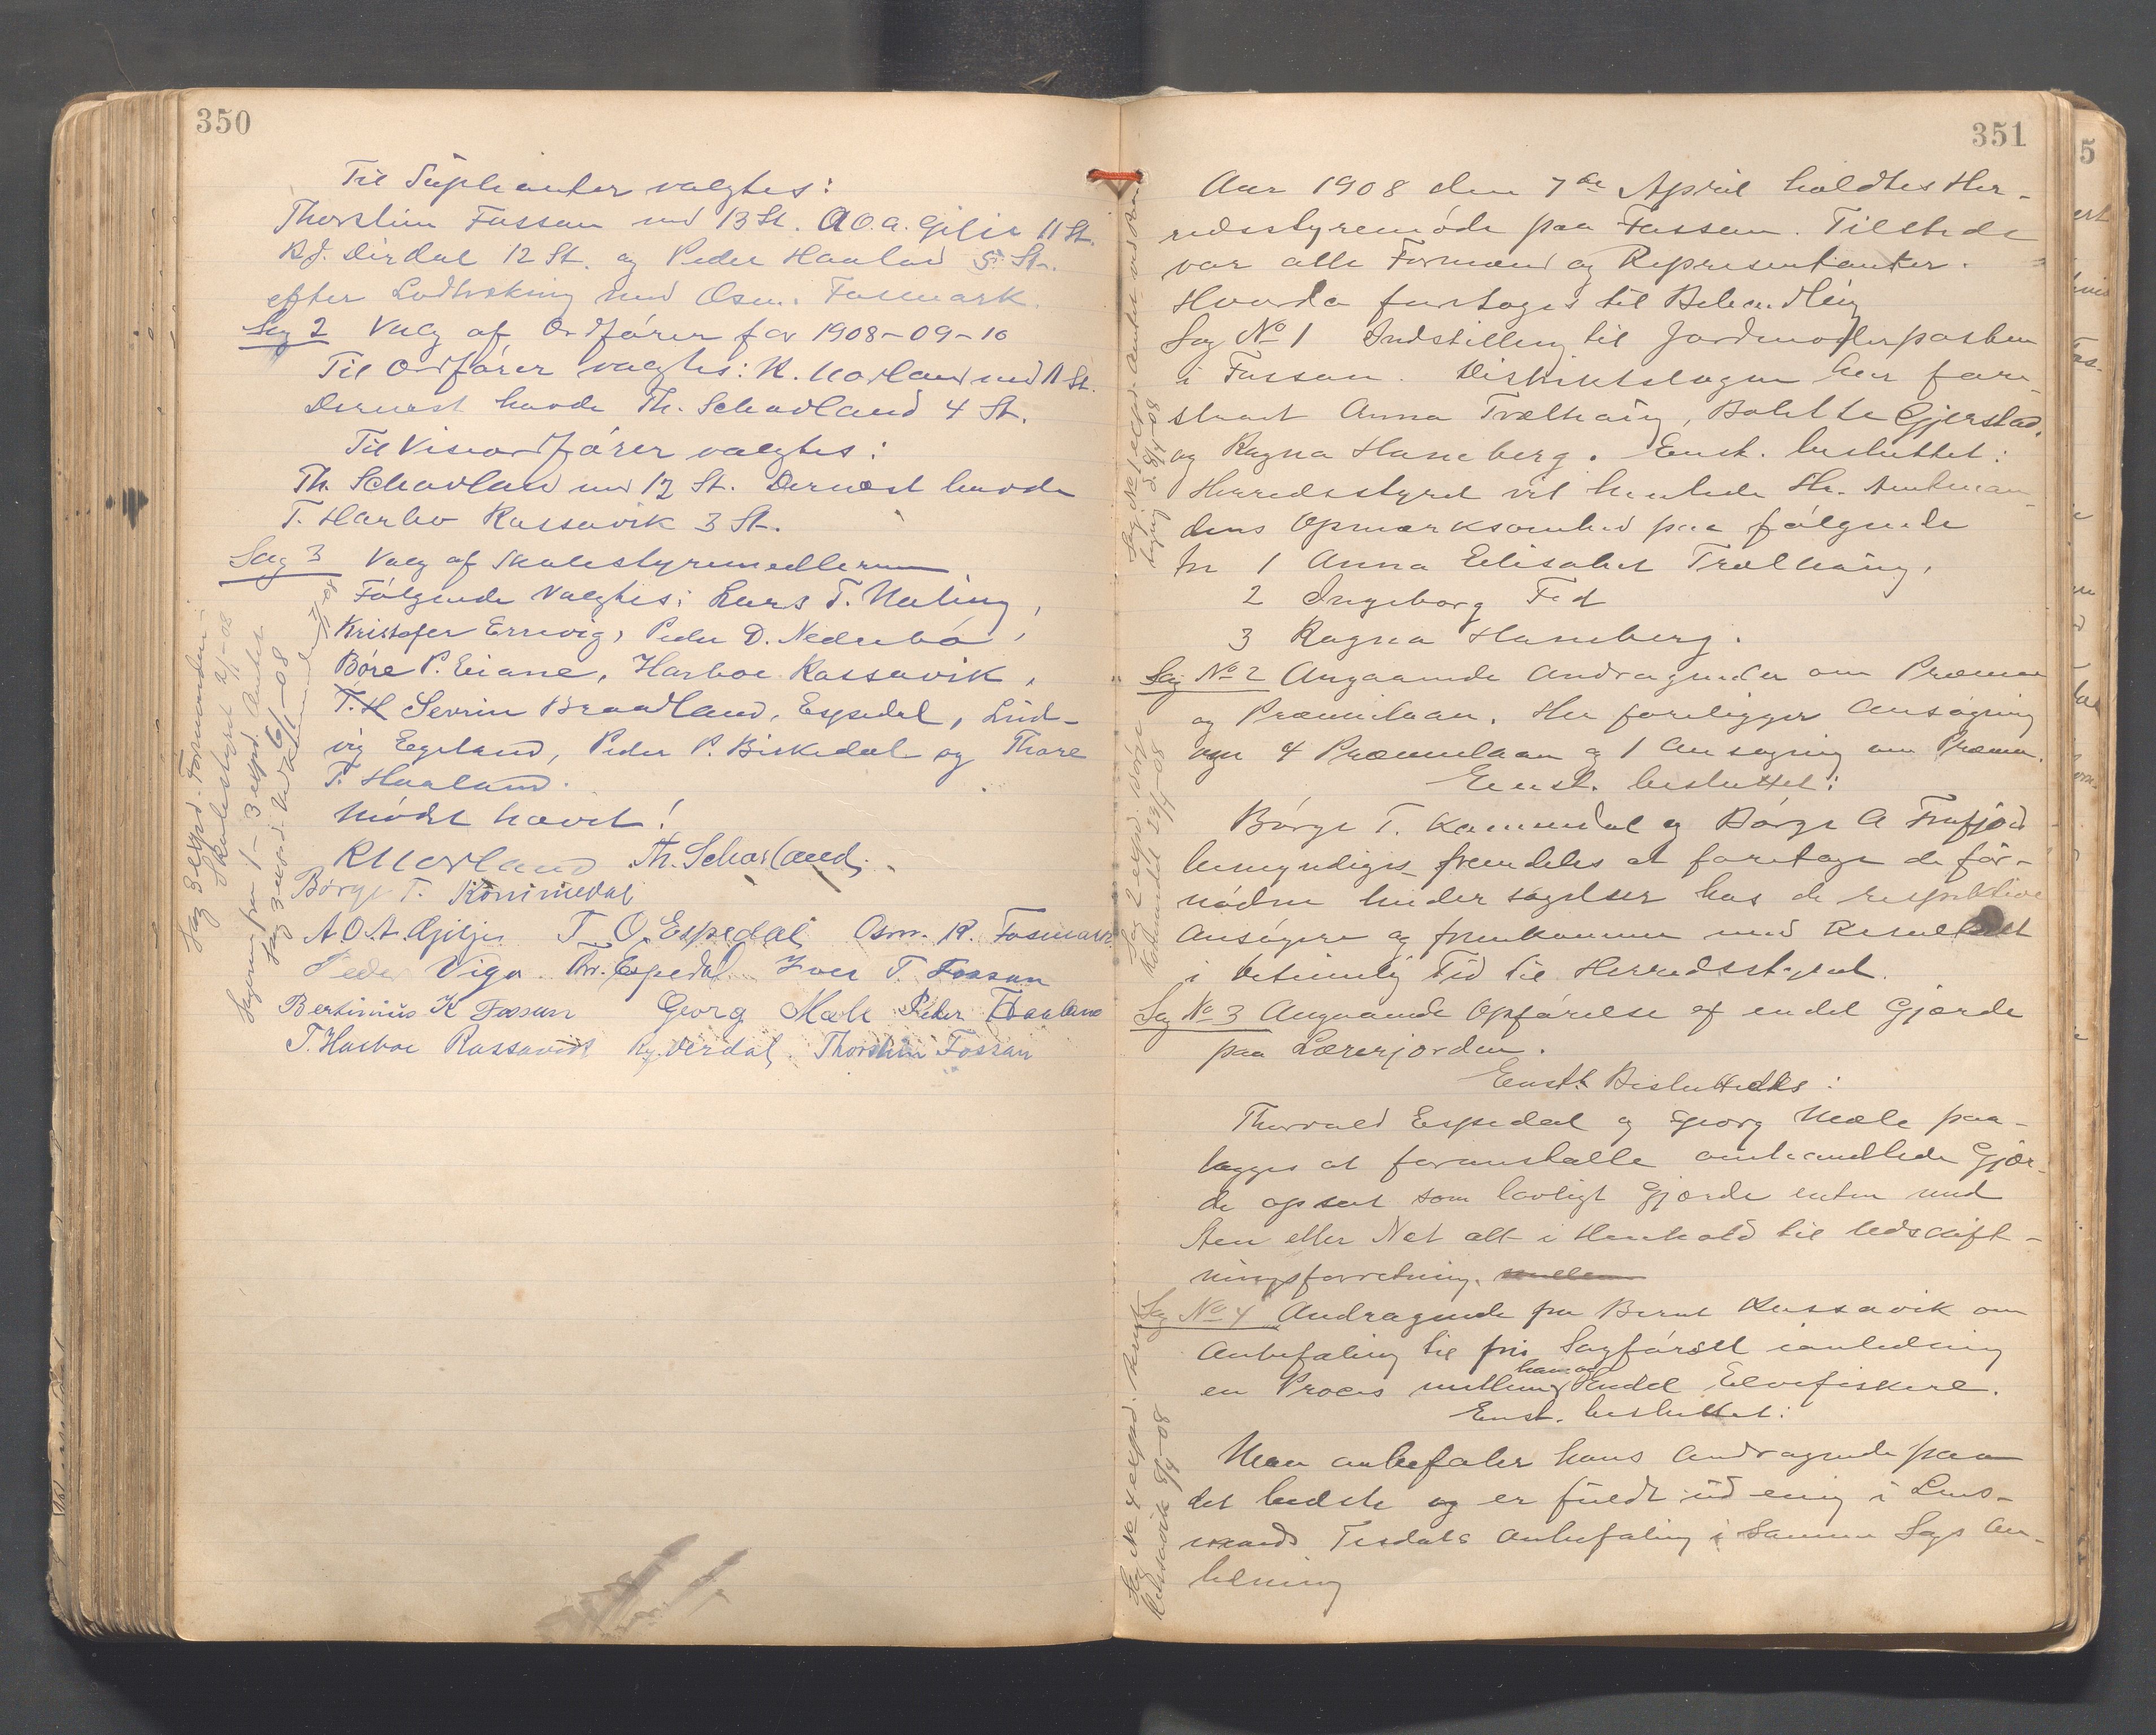 350
Til Suplianter valgtes:
Thorstein Fossan med 13 St. A O. A. Gilje 11 St.
R J. Dirdal 12 St. og Peder Haaland 5 St.
efter Lodtrækning med Osm. Fosmark.
Sag 2 Valg af Ordfører for 1908-09-10
Til Ordfører valgtes: K. Morland med 11 St.
Dernæst havde Th. Schavland 4 St.
Til Viseordfører valgtes:
Th. Schavland med 12 St. Dernæst havde
T. Harbo Rassavik 3 St.
Sag 3 Valg af Skolestyremedlemmer
Følgende Valgtes: Lars T. Meling,
Kristofer Errevig, Peder D. Nedrebø,
Børe P. Eiane, Harboe Rassavik,
T. H Sevrin Braadland, Espedal, Lud-
vig Egeland, Peder P. Birkedal og Thore
T. Haaland.
Mødet hævet!
K Morland Th. Schavland.
Børge T. Kommedal
A O. A. Gilje T. O. Espedal Osm. R. Fosmark
Peder Viga. Thv. Espedal Iver T. Fossan
Bertinius K Fossan Georg Mæle Peder Haaland
T. Harboe Rassavik Rg. Dirdal Thorstein Fossan
Sag 3 exped. Formanden i
Skolestyret 2/1-08
Sagerne fra 1-3 exped. Amtet
6/1-08
351
Aar 1908 den 7de April holdtes Her-
redsstyremøde paa Fossan. Tilstede
var alle Formænd og Representanter.
Hvorda furtoges til Behandling
Sag No 1 Indstilling til Jordmoderposten
i Fossan. Distriktslægen har fore-
slaaet Anna Trælhaug, Bolette Gjerstad,
og Ragna Haneberg. Enst. besluttet:
Herredsstyret vil henlede Hr. Amtman-
dens Opmærksomhed paa følgende
Nr 1 Anna Elisabet Trælhaug,
2 Ingeborg Fed
3 Ragna Haneberg.
Sag No 2 Angaaende Andragender om Præmier
og Præmielaan. Her foreligger Ansøgning
om 4 Præmielaan og 1 Ansøgning om Præmie.
Enst. besluttet:
Børge T. Kommedal og Børge A Frafjord
bemyndiges fremdeles at foretage de for-
nødne Undersøgelser hos de respektive
Ansøgere og fremkomme med Resultatet
i betimelig Tid til Herredsstyret.
Sag No 3 Angaaende Opførelse af endel Gjærde
paa Lærerjorden.
Enst. Besluttedes:
Thorvald Espedal og Georg Mæle paa-
lægges at foranstalte omhandlede Gjær-
de opsat som lovligt Gjærde enten med
Sten eller Net alt i Henhold til Udskift-
ningsforretning.
Sag No 4 Andragende fra Bernt Rassavik om
Anbefaling til fri Sagførsel ianledning
en Proces mellem ham og Endel Elvefiskere.
Enst. besluttet:
Man anbefaler hans Andragende paa
det bedste og er fuldt ud enig i Lens-
mands Tisdals Anbefaling i Samme Sags An-
ledning
Sag No 1 exped. Amtet
d. 8/4 08
Sag 2 exped. Børge
Kommedal 29/4-08
Sag No 4 exped. Bernt
Rassavik 8/4-08